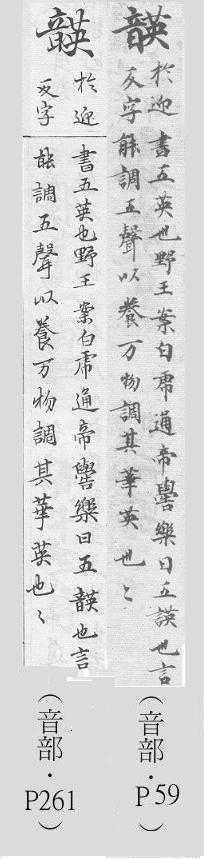 韺
於迎書五英也野王案白虎通帝嚳樂曰五韺也言
反字能調五聲以養万物調其華英也〻
(音部・P59)
韺
於迎
反字
書五英也野王案白虎通帝嚳樂曰五韺也言
能調五聲以養万物調其華英也〻
(音部・P261)